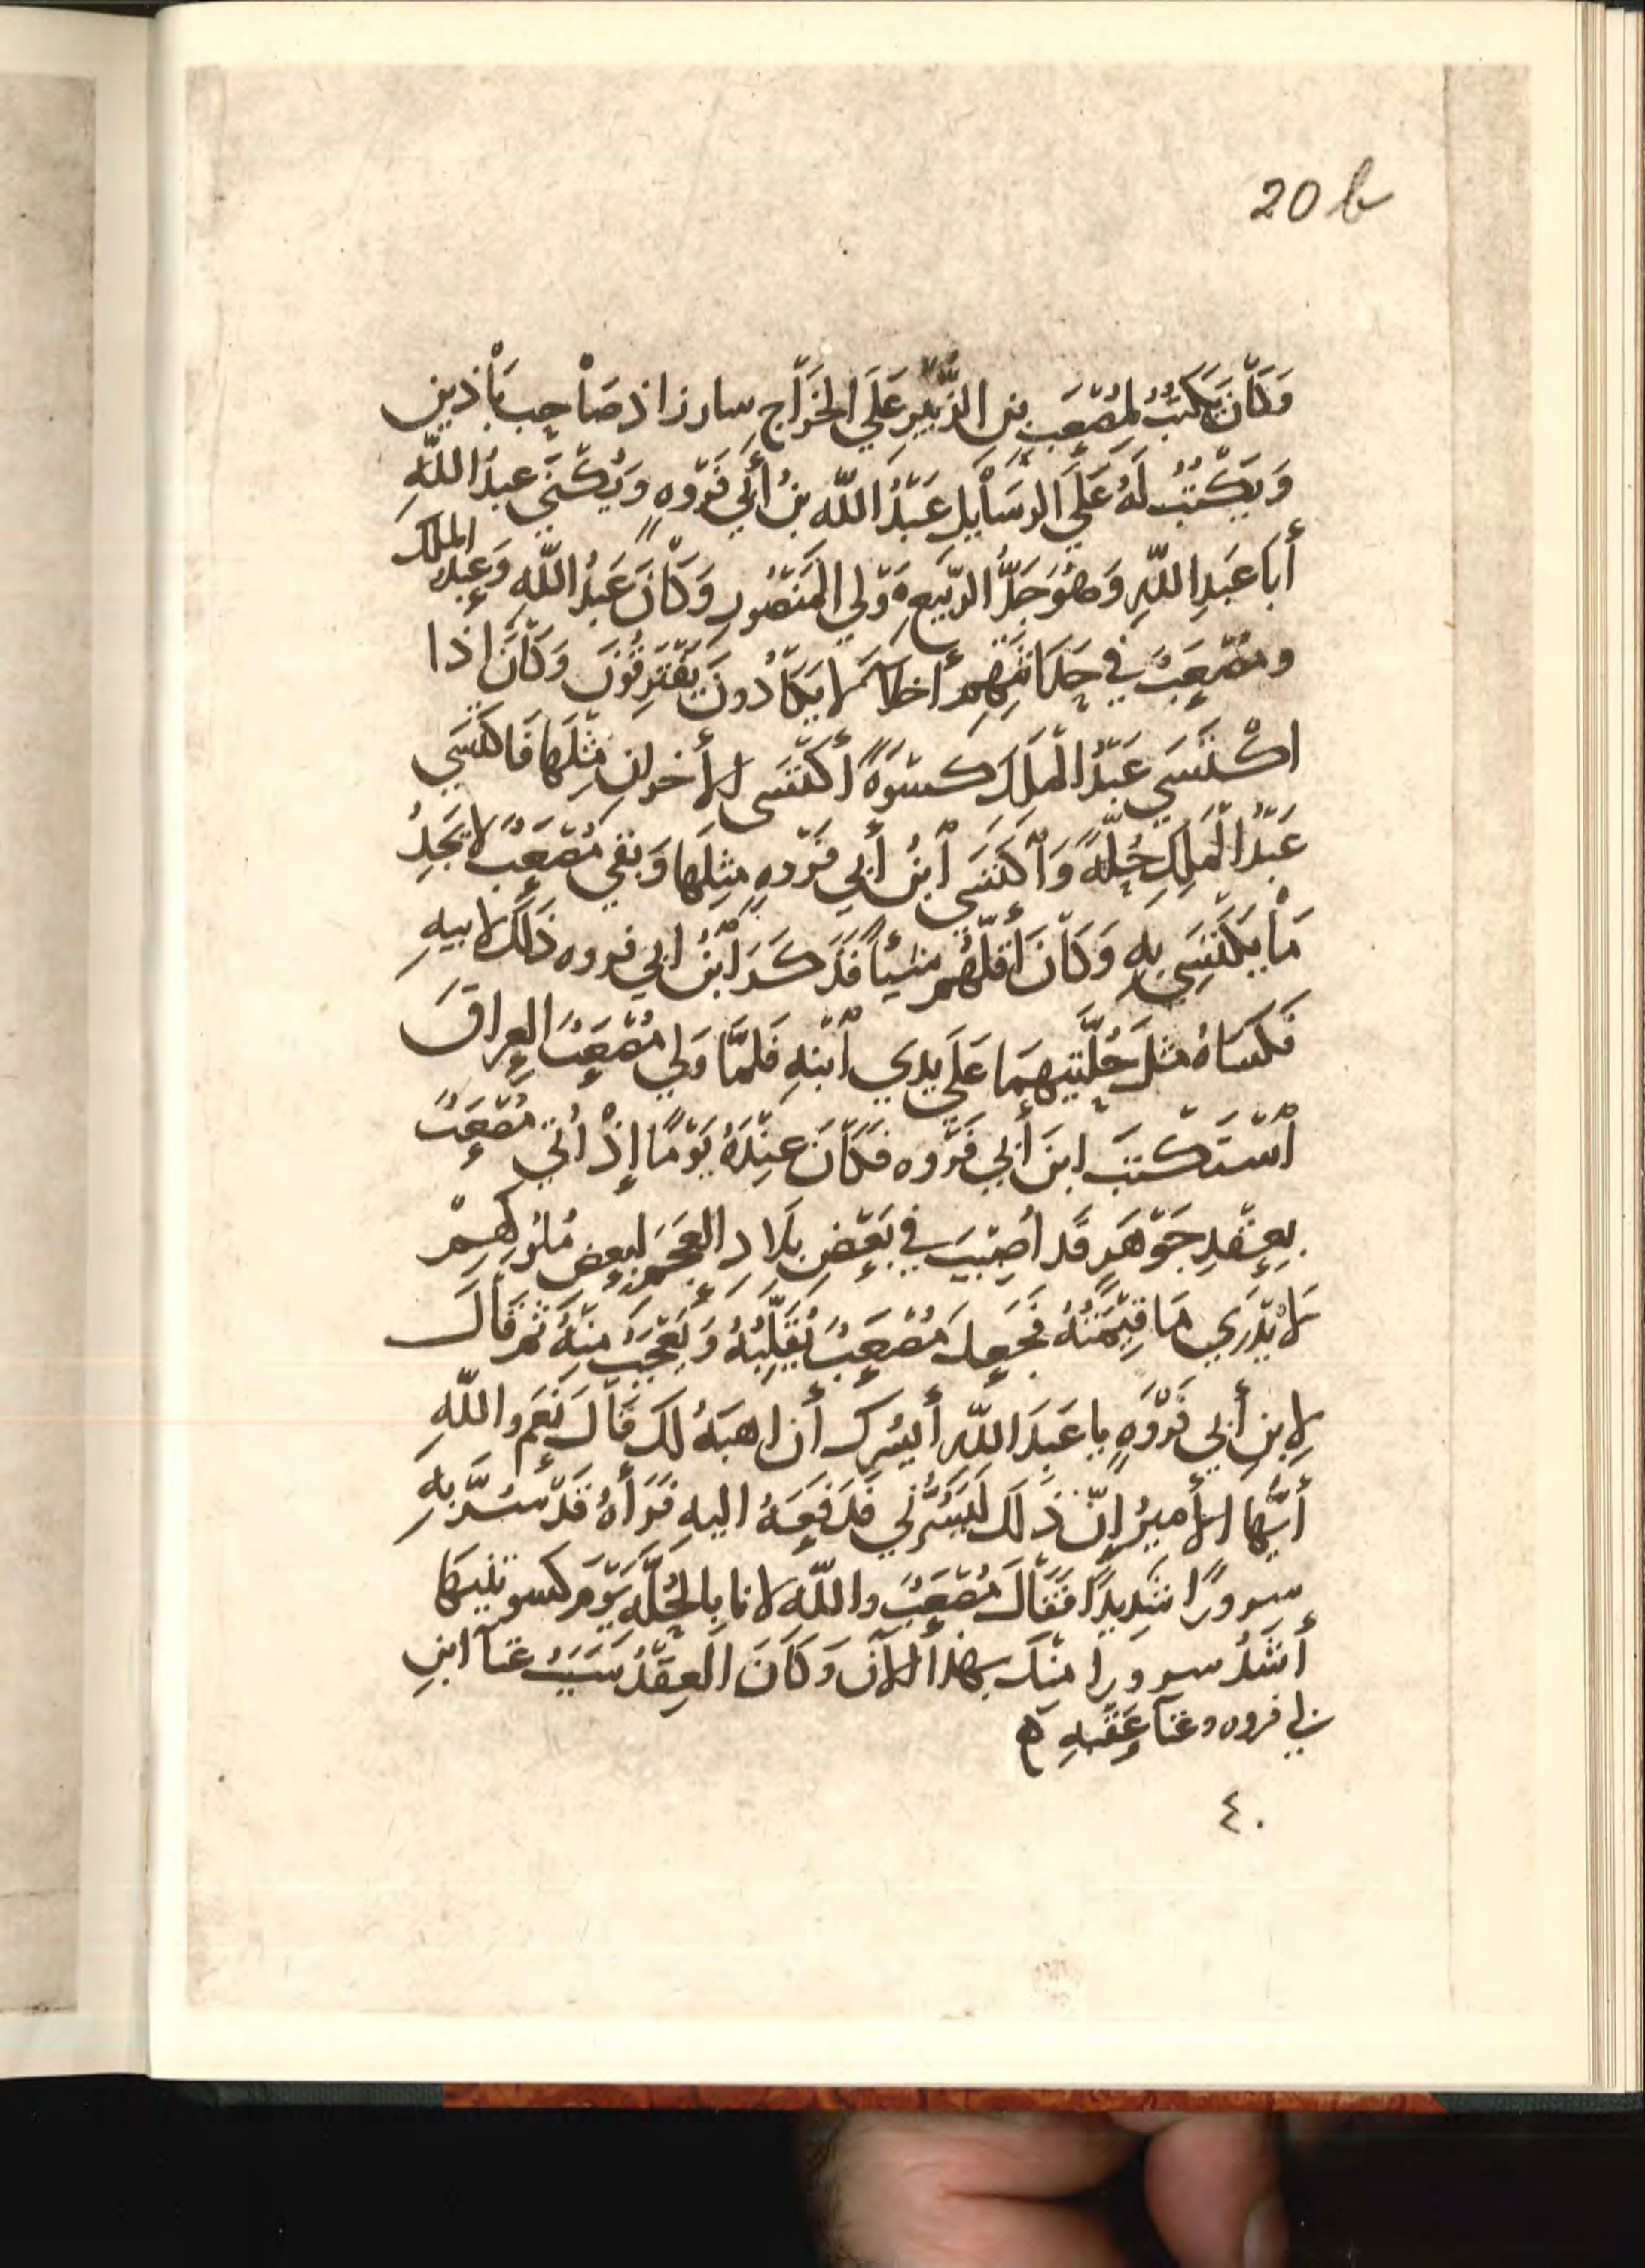 20 b
وَكَانَ يَكتبُ لمُصْعَبِ بنِ الزُّبَيْرِ عَلَي الخَرَاجِ سارزاذ صَاحِب بَاذبين
وَيَكْتبُ لَهُ عَلَي الرسَايِلِ عَبْدُ اللّه بنُ أَبي فَرْوه وَيُكَنّي عبدُ اللّهِ
أَبا عَبدِ اللّهِ وَهُوَ جَدُّ الرَّبيعِ مَوْلي المَنْصُورِ وَكَانَ عَبدُ اللّهِ وَعبدُ الملك
ومُصْعَبٌ في حَدَاثتِهِم أخلاَّ لا يَكَادُونَ يَفْتَرِقُونَ وَكَانَ إذا
اكْتَسَي عَبْدُ الْمَلِكِ كسْوَةً أكْتَسَى الأخرانِ مِثْلَها فَاكتَسَي
عَبْدُ الْمَلِكِ حُلَّةً وَاكتَسَي ابْنُ أَبي فَرْوهِ مِثلَها وَبقي مُصْعَبٌ لا يَجِدُ
مَا يَكتَسِي بِهِ وَكَانَ أقَلَّهُم شيئاً فَذَكَرَ ابْنُ ابي فروه ذَلكَ لابيهِ
فَكسَاهُ مثلَ حُلَّتَيهِمَا عَلَي يَدِي ابْنهِ فَلمَّا وَلي مُصْعَبٌ العِراقَ
اسْتَكْتَبَ ابنَ أبي فَرْوه فَكَانَ عِنْدَهُ يَوْمًا إذْ أُتي مُصْعَبٌ
بِعِقْدِ جَوْهَرٍ قَد أُصِيْبَ في بَعْضِ بلَادِ العَجَمِ لبعضِ مُلوكِهِمْ
لَا يُدْرَي مَا قِيْمَتُهُ فجَعلَ مُصْعَبٌ يُقَلِّبُهُ وَيَعْجَبُ مِنْهُ ثم قَالَ
لِابنِ أبي فَرْوَهِ يا عَبدَ اللّهِ أيسُرك أن اهبَهُ لك قَالَ نَعَم واللّهِ
أيُّها الأميرُ إنّ ذلك ليَسُرُّني فدَفعَهُ اليهِ فَرأهُ قَدْ سُرَّ بهِ
سرورًا شديدًا فقَالَ مُصْعَبٌ واللّهِ لانا بالحُلّهِ يَوْمَ كسوتنيها
أشَدُّ سرورا مِنْكَ بهذا الآن وَكَانَ العِقْدُ سَبَبَ غنآ ابنِ
ابي فروه وغنآ عَقِبهِ ه
٤٠